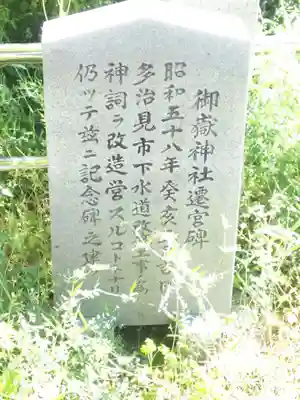 御嶽神社遷宮碑
昭和五十八年癸亥
多治見市下水道改
神詞ヲ改造営スルコトナリ
仍ツテ茲ニ記念碑之建